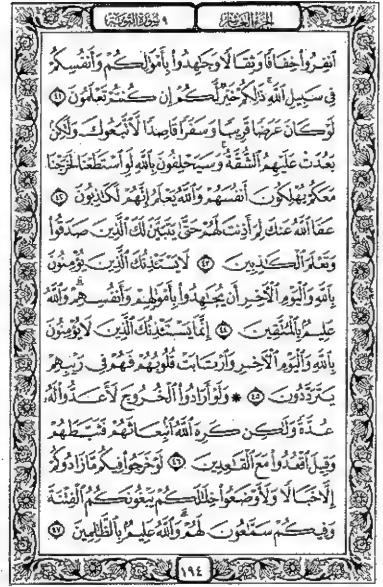 الجزء العاشر
٩ سورة التوبة
ٱنفِرُوا۟ خِفَافًا وَثِقَالًا وَجَـٰهِدُوا۟ بِأَمْوَٰلِكُمْ وَأَنفُسِكُمْ
فِى سَبِيلِ ٱللَّهِ ۚ ذَٰلِكُمْ خَيْرٌ لَّكُمْ إِن كُنتُمْ تَعْلَمُونَ ٤١
لَوْ كَانَ عَرَضًا قَرِيبًا وَسَفَرًا قَاصِدًا لَّٱتَّبَعُوكَ وَلَـٰكِنۢ
بَعُدَتْ عَلَيْهِمُ ٱلشُّقَّةُ ۚ وَسَيَحْلِفُونَ بِٱللَّهِ لَوِ ٱسْتَطَعْنَا لَخَرَجْنَا
مَعَكُمْ يُهْلِكُونَ أَنفُسَهُمْ وَٱللَّهُ يَعْلَمُ إِنَّهُمْ لَكَـٰذِبُونَ ٤٢
عَفَا ٱللَّهُ عَنكَ لِمَ أَذِنتَ لَهُمْ حَتَّىٰ يَتَبَيَّنَ لَكَ ٱلَّذِينَ صَدَقُوا۟
وَتَعْلَمَ ٱلْكَـٰذِبِينَ ٤٣ لَا يَسْتَـْٔذِنُكَ ٱلَّذِينَ يُؤْمِنُونَ
بِٱللَّهِ وَٱلْيَوْمِ ٱلْـَٔاخِرِ أَن يُجَـٰهِدُوا۟ بِأَمْوَٰلِهِمْ وَأَنفُسِهِمْ ۗ وَٱللَّهُ
عَلِيمٌۢ بِٱلْمُتَّقِينَ ٤٤ إِنَّمَا يَسْتَـْٔذِنُكَ ٱلَّذِينَ لَا يُؤْمِنُونَ
بِٱللَّهِ وَٱلْيَوْمِ ٱلْـَٔاخِرِ وَٱرْتَابَتْ قُلُوبُهُمْ فَهُمْ فِى رَيْبِهِمْ
يَتَرَدَّدُونَ ٤٥ ۞ وَلَوْ أَرَادُوا۟ ٱلْخُرُوجَ لَأَعَدُّوا۟ لَهُۥ
عُدَّةً وَلَـٰكِن كَرِهَ ٱللَّهُ ٱنۢبِعَاثَهُمْ فَثَبَّطَهُمْ
وَقِيلَ ٱقْعُدُوا۟ مَعَ ٱلْقَـٰعِدِينَ ٤٦ لَوْ خَرَجُوا۟ فِيكُم مَّا زَادُوكُمْ
إِلَّا خَبَالًا وَلَأَوْضَعُوا۟ خِلَـٰلَكُمْ يَبْغُونَكُمُ ٱلْفِتْنَةَ
وَفِيكُمْ سَمَّـٰعُونَ لَهُمْ ۗ وَٱللَّهُ عَلِيمٌۢ بِٱلظَّـٰلِمِينَ ٤٧
١٩٤